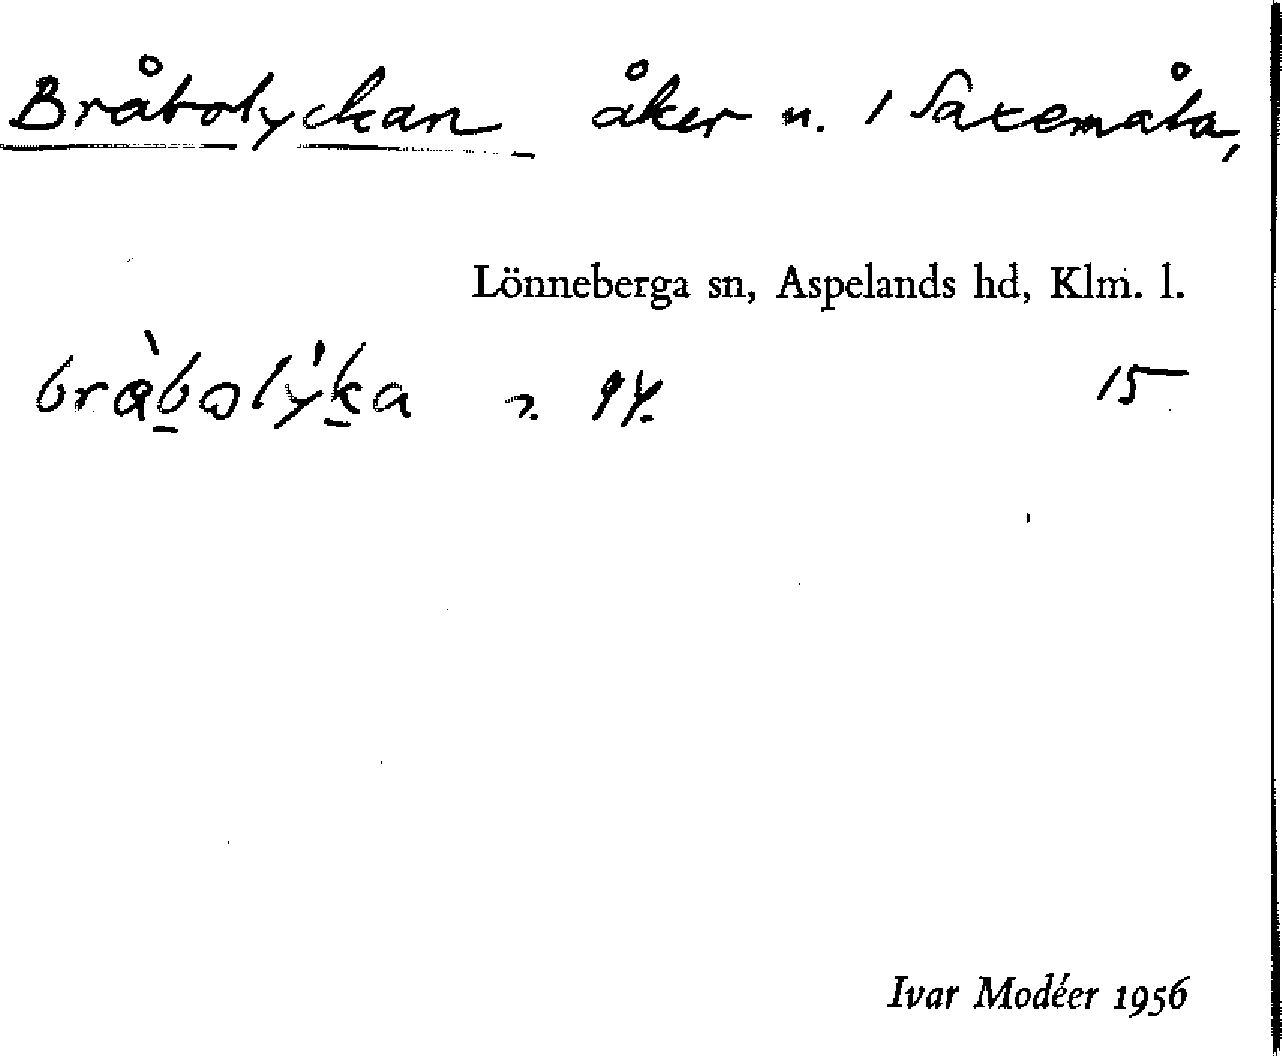 Bråbolyckan åker n. 1 Saxemåla,
Lönneberga sn, Aspelands hd, Klm. l.
bråbolyka 15
Ivar Modéer 1956